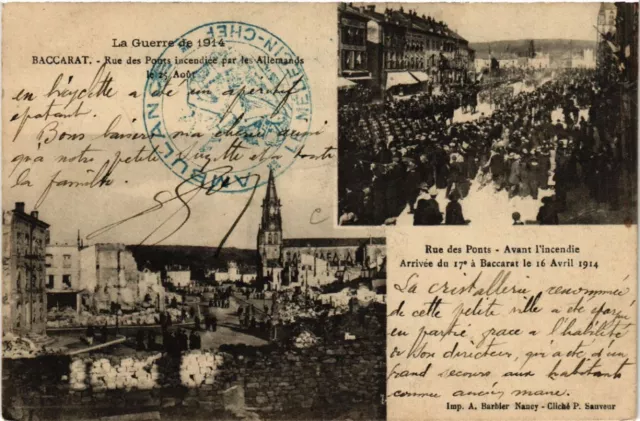 La Guerre de 1914
BACCARAT. - Rue des Ponts incendiée par les Allemands
le 25 Août
en bicyclette a été un apéritif
épatant.
Bons baisers ma chérie ainsi
qu'a notre petite et toute
la famille.
AMBULANCE
MÉDECIN-CHEF
Rue des Ponts - Avant l'incendie
Arrivée du 17e à Baccarat le 16 Avril 1914
La cristallerie renommée
de cette petite ville a été épar
en partie grace a l'habilité
de son directeur, qui a été d'un
grand secours aux habitants
comme ancien maire.
Imp. A. Barbier Nancy - Cliché P. Sauveur